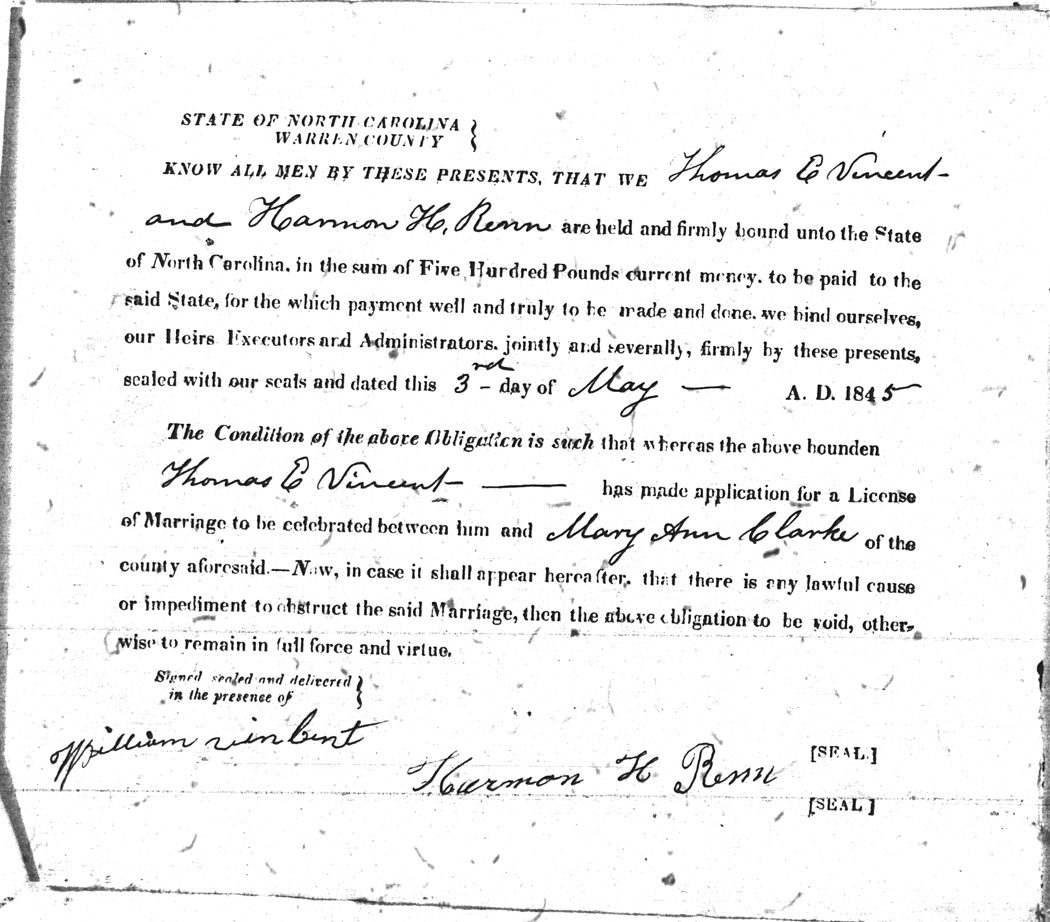 STATE OF NORTH CAROLINA
WARREN COUNTY
KNOW ALL MEN BY THESE PRESENTS, THAT WE Thomas E Vincent
and Harmon H. Renn are held and firmly bound unto the State
of North Carolina, in the sum of Five Hundred Pounds current money, to be paid to the
said State, for the which payment well and truly to be made and done, we bind ourselves,
our Heirs Executors and Administrators, jointly and severally, firmly by these presents,
sealed with our seals and dated this 3rd day of May — A. D. 1845
The Condition of the above Obligation is such that whereas the above bounden
Thomas E Vincent — has made application for a License
of Marriage to be celebrated between him and Mary Ann Clarke of the
county aforesaid.—Now, in case it shall appear hereafter, that there is any lawful cause
or impediment to obstruct the said Marriage, then the above obligation to be void, other-
wise to remain in full force and virtue.
Signed sealed and delivered
in the presence of
William vincent
[SEAL]
Harmon H Renn
[SEAL]